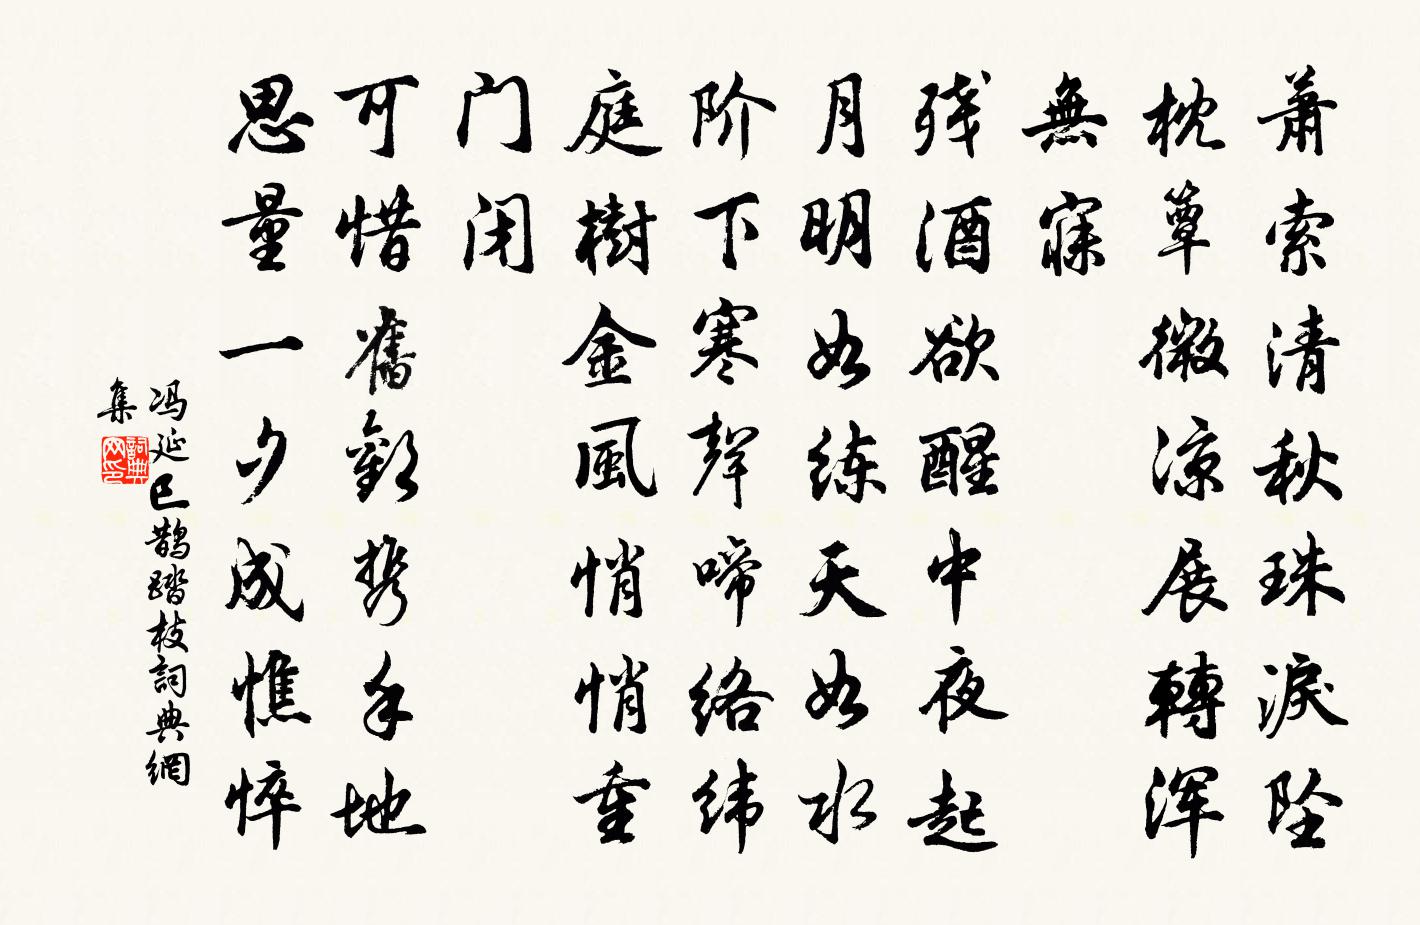 萧索清秋珠淚坠
枕簟微凉展轉浑
無寐
残酒欲醒中夜起
月明如练天如水
阶下寒聲啼络纬
庭樹金風悄悄重
门闭
可惜舊歡携手地
思量一夕成憔悴
冯延巳鹊踏枝詞典網
集
詞典
网印